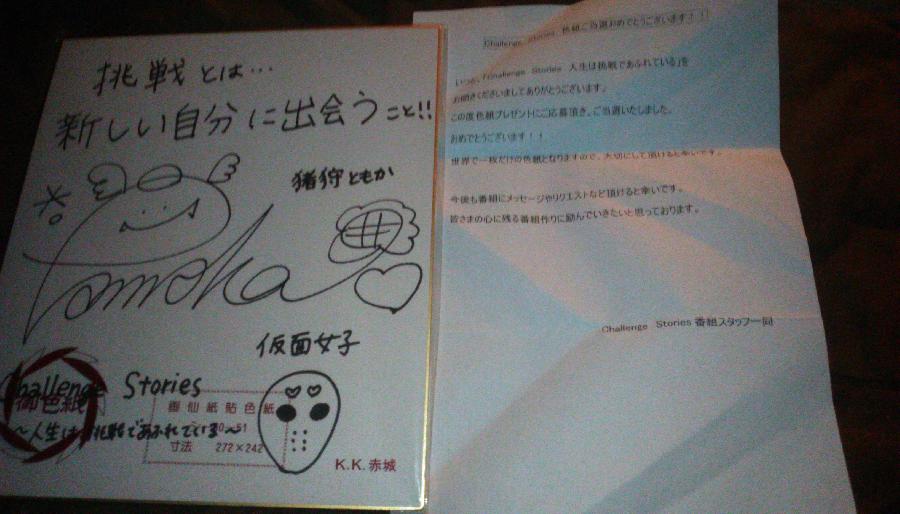 挑戦とは…
新しい自分に出会うこと!!
猪狩ともか
Tomoka
仮面女子
Challenge Stories
御色紙
～人生は挑戦であふれている～
画仙紙貼色紙
寸法 272×242
K.K.赤城
Challenge Stories 色紙ご当選おめでとうございます！！
いつも、「Challenge Stories 人生は挑戦であふれている」を
お聞きくださいましてありがとうございます。
この度色紙プレゼントにご応募頂き、ご当選いたしました。
おめでとうございます！！
世界で一枚だけの色紙となりますので、大切にして頂けると幸いです。
今後も番組にメッセージやリクエストなど頂けると幸いです。
皆さまの心に残る番組作りに励んでいきたいと思っております。
Challenge Stories 番組スタッフ一同